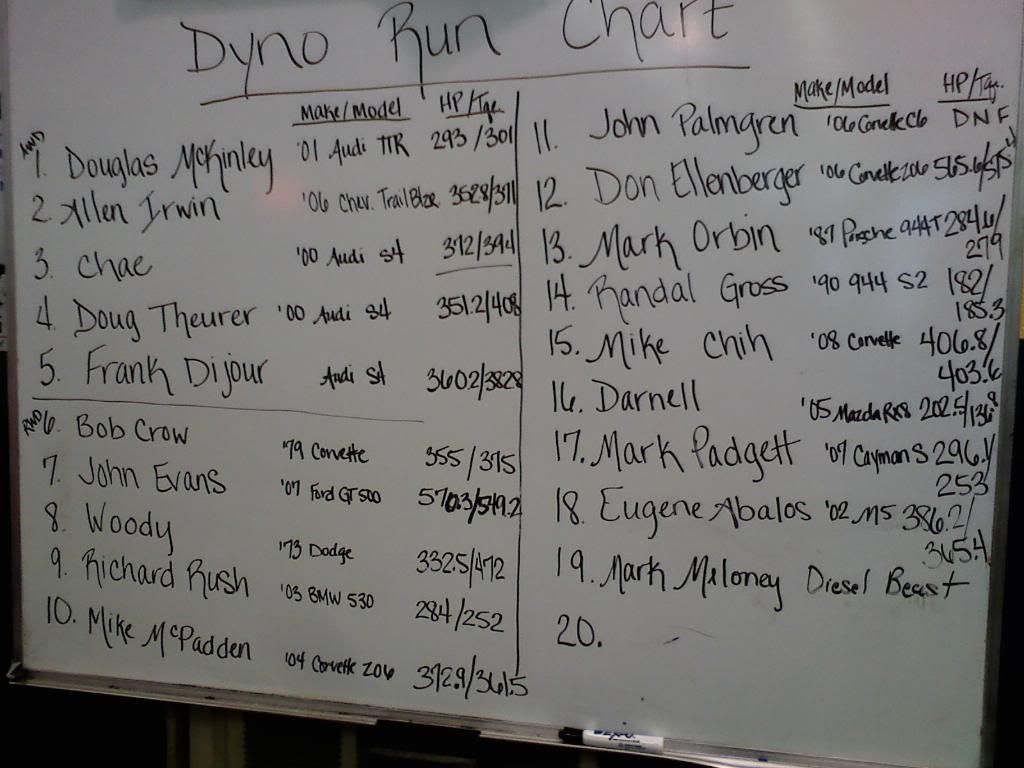 Dyno Run Chart
Make/Model HP/Tqe.
AWD
1. Douglas McKinley '01 Audi TTR 293/301
2. Allen Irwin '06 Chev. TrailBlze 352.8/371
3. Chae '00 Audi S4 312/394
4. Doug Theurer '00 Audi S4 351.2/408
5. Frank Dijour Audi S4 360.2/382.8
RWD
6. Bob Crow '79 Corvette 355/375
7. John Evans '07 Ford GT500 570.3/549.2
8. Woody '73 Dodge 332.5/472
9. Richard Rush '03 BMW 530 284/252
10. Mike McPadden '04 Corvette Z06 372.9/361.5
Make/Model HP/Tqe.
11. John Palmgren '06 Corvette C6 DNF
12. Don Ellenberger '06 Corvette Z06
13. Mark Orbin '87 Porsche 944T 284.6/
279
14. Randal Gross '90 944 S2 182/
185.3
15. Mike Chih '08 Corvette 406.8/
403.6
16. Darnell '05 Mazda RX8 202.5/136.8
17. Mark Padgett '07 Cayman S 296.1/
253
18. Eugene Abalos '02 M5 386.2/
365.4
19. Mark Meloney Diesel Beast
20.